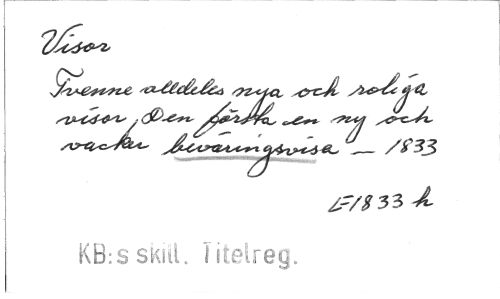 Visor
Tvenne alldeles nya och roliga
visor, Den första en ny och
vacker beväringsvisa — 1833
E1833 h
KB:s skill. Titelreg.